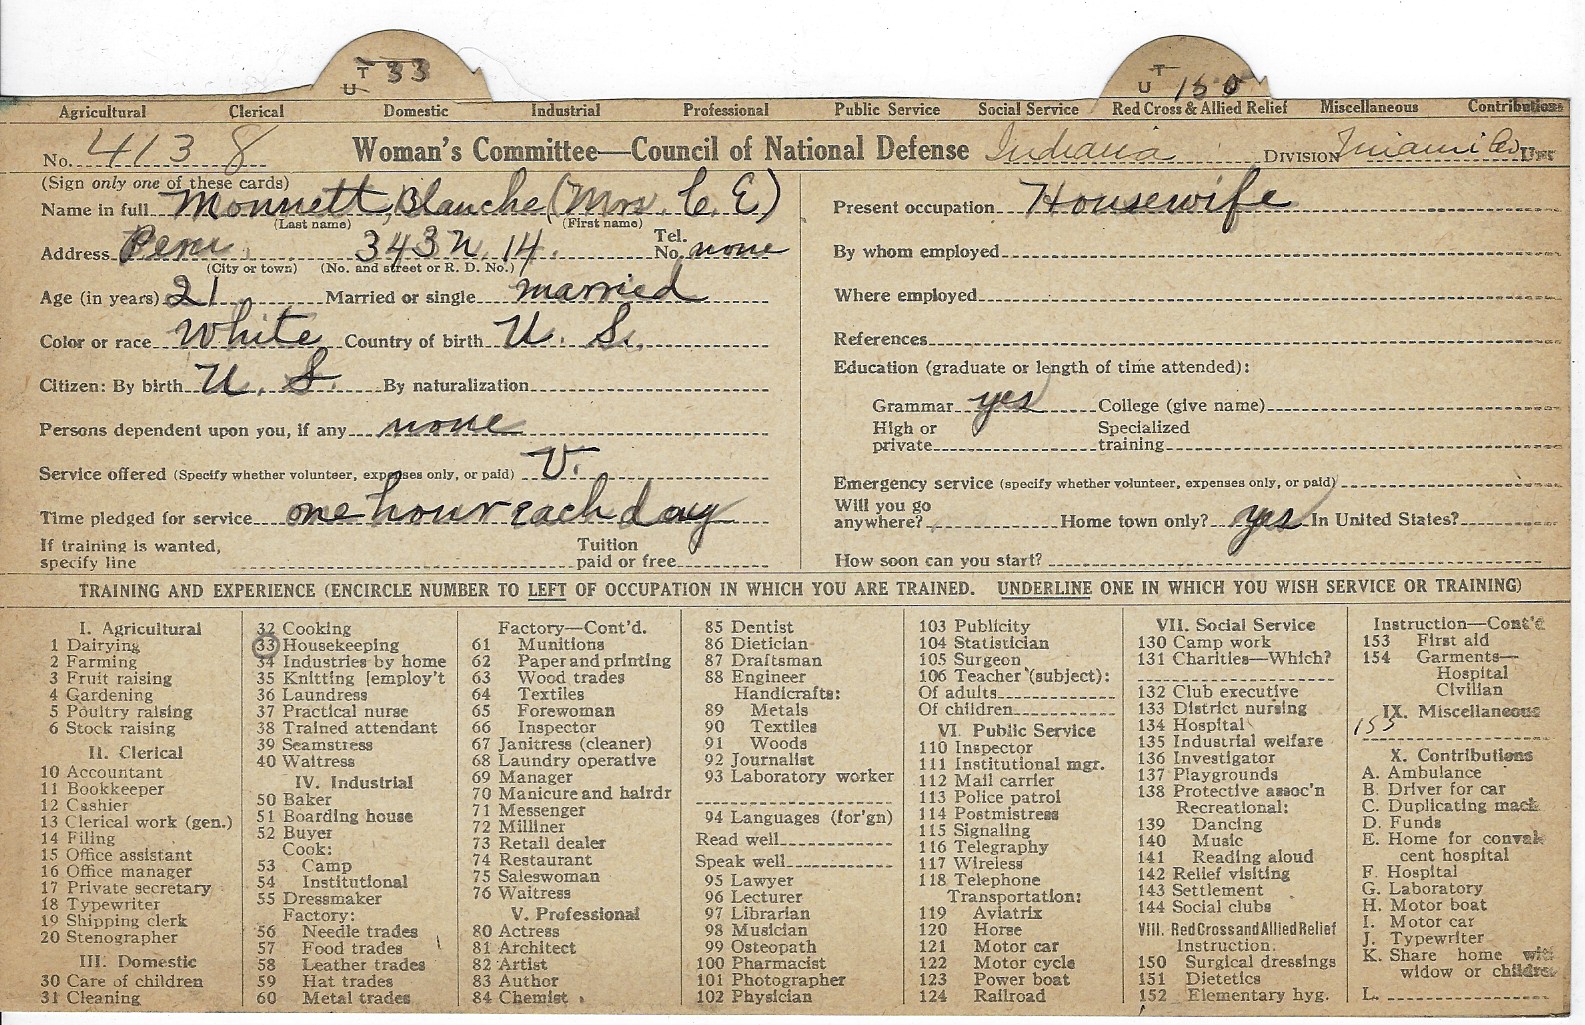 T U 33
T U 150
Agricultural Clerical Domestic Industrial Professional Public Service Social Service Red Cross & Allied Relief Miscellaneous Contributions
No. 413 8 Woman's Committee—Council of National Defense Indiana DIVISION Miami Co. Unit
(Sign only one of these cards)
Name in full Monnett, Blanche (Mrs. C. E)
(Last name) (First name)
Address Peru 343 N. 14. Tel. No. none
(City or town) (No. and street or R. D. No.)
Age (in years) 21 Married or single married
Color or race White Country of birth U. S.
Citizen: By birth U. S. By naturalization
Persons dependent upon you, if any none
Service offered (Specify whether volunteer, expenses only, or paid) V.
Time pledged for service one hour each day
If training is wanted, specify line Tuition paid or free
Present occupation Housewife
By whom employed
Where employed
References
Education (graduate or length of time attended):
Grammar yes College (give name)
High or private Specialized training
Emergency service (specify whether volunteer, expenses only, or paid)
Will you go anywhere? Home town only? yes In United States?
How soon can you start?
TRAINING AND EXPERIENCE (ENCIRCLE NUMBER TO LEFT OF OCCUPATION IN WHICH YOU ARE TRAINED. UNDERLINE ONE IN WHICH YOU WISH SERVICE OR TRAINING)
I. Agricultural
1 Dairying
2 Farming
3 Fruit raising
4 Gardening
5 Poultry raising
6 Stock raising
II. Clerical
10 Accountant
11 Bookkeeper
12 Cashier
13 Clerical work (gen.)
14 Filing
15 Office assistant
16 Office manager
17 Private secretary
18 Typewriter
19 Shipping clerk
20 Stenographer
III. Domestic
30 Care of children
31 Cleaning
32 Cooking
33 Housekeeping
34 Industries by home
35 Knitting [employ't
36 Laundress
37 Practical nurse
38 Trained attendant
39 Seamstress
40 Waitress
IV. Industrial
50 Baker
51 Boarding house
52 Buyer
Cook:
53 Camp
54 Institutional
55 Dressmaker
Factory:
56 Needle trades
57 Food trades
58 Leather trades
59 Hat trades
60 Metal trades
Factory—Cont'd.
61 Munitions
62 Paper and printing
63 Wood trades
64 Textiles
65 Forewoman
66 Inspector
67 Janitress (cleaner)
68 Laundry operative
69 Manager
70 Manicure and hairdr
71 Messenger
72 Milliner
73 Retail dealer
74 Restaurant
75 Saleswoman
76 Waitress
V. Professional
80 Actress
81 Architect
82 Artist
83 Author
84 Chemist
85 Dentist
86 Dietician
87 Draftsman
88 Engineer
Handicrafts:
89 Metals
90 Textiles
91 Woods
92 Journalist
93 Laboratory worker
94 Languages (for'gn)
Read well
Speak well
95 Lawyer
96 Lecturer
97 Librarian
98 Musician
99 Osteopath
100 Pharmacist
101 Photographer
102 Physician
103 Publicity
104 Statistician
105 Surgeon
106 Teacher (subject):
Of adults
Of children
VI. Public Service
110 Inspector
111 Institutional mgr.
112 Mail carrier
113 Police patrol
114 Postmistress
115 Signaling
116 Telegraphy
117 Wireless
118 Telephone
Transportation:
119 Aviatrix
120 Horse
121 Motor car
122 Motor cycle
123 Power boat
124 Railroad
VII. Social Service
130 Camp work
131 Charities—Which?
132 Club executive
133 District nursing
134 Hospital
135 Industrial welfare
136 Investigator
137 Playgrounds
138 Protective assoc'n
Recreational:
139 Dancing
140 Music
141 Reading aloud
142 Relief visiting
143 Settlement
144 Social clubs
VIII. Red Cross and Allied Relief
Instruction.
150 Surgical dressings
151 Dietetics
152 Elementary hyg.
Instruction—Cont'd
153 First aid
154 Garments—
Hospital
Civilian
IX. Miscellaneous
155
X. Contributions
A. Ambulance
B. Driver for car
C. Duplicating mach
D. Funds
E. Home for conval
cent hospital
F. Hospital
G. Laboratory
H. Motor boat
I. Motor car
J. Typewriter
K. Share home with
widow or children
L.